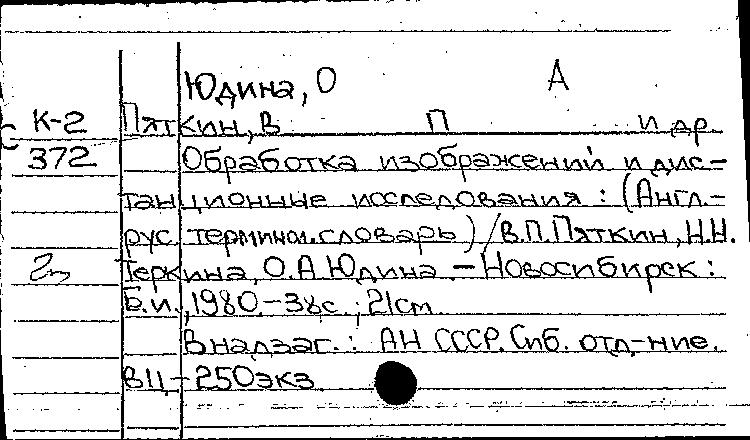 Юдина, О А
К-2 Пяткин, В П и др.
372 Обработка изображений и дис-
танционные исследования : (Англ.-
рус. терминол. словарь) / В.П. Пяткин, Н.Н.
Теркина, О.А Юдина. - Новосибирск :
Б.и., 1980. - 38с. ; 21см.
В надзаг. : АН СССР. Сиб. отд-ние.
ВЦ - 250экз.